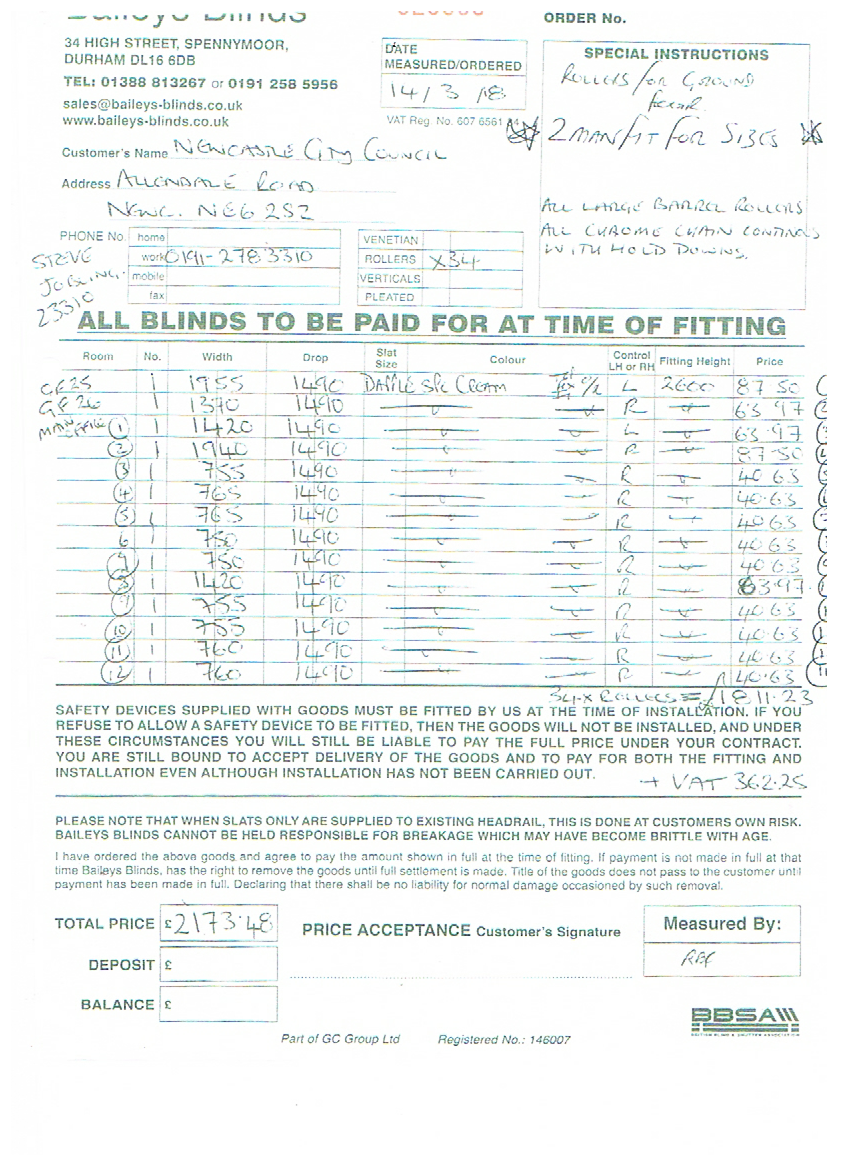 Baileys Blinds
ORDER No.
34 HIGH STREET, SPENNYMOOR,
DURHAM DL16 6DB
TEL: 01388 813267 or 0191 258 5956
sales@baileys-blinds.co.uk
www.baileys-blinds.co.uk
DATE
MEASURED/ORDERED
14/3/18
VAT Reg. No. 607 6561
SPECIAL INSTRUCTIONS
ROLLERS FOR GROUND
FLOOR
2 MAN FIT FOR SIZES
ALL LARGE BARREL ROLLERS
ALL CHROME CHAIN CONTROLS
WITH HOLD DOWNS.
Customer's Name NEWCASTLE CITY COUNCIL
Address ALLENDALE ROAD
NEWC. NE6 2SZ
PHONE No. home
work 0191-278 3310
mobile
fax
STEVE
JOBLING.
23310
VENETIAN
ROLLERS X34
VERTICALS
PLEATED
ALL BLINDS TO BE PAID FOR AT TIME OF FITTING
Room No. Width Drop Slat Size Colour Control LH or RH Fitting Height Price
GF25 1 1955 1490 CREAM L 2600 87 50
GF26 1 1370 1490 R 63 97
MAIN OFFICE 1 1 1420 1490 L 63 97
2 1 1940 1490 R 87.50
3 1 755 1490 R 40 63
4 1 765 1490 R 40.63
5 1 765 1490 R 40 63
6 1 750 1490 R 40 63
1 750 1490 R 40 63
1 1420 1490 R 63 97
1 755 1490 R 40.63
10 1 755 1490 R 40.63
11 1 760 1490 R 40.63
12 1 760 1490 R 40.63
34 x ROLLERS = 1811.23
SAFETY DEVICES SUPPLIED WITH GOODS MUST BE FITTED BY US AT THE TIME OF INSTALLATION. IF YOU
REFUSE TO ALLOW A SAFETY DEVICE TO BE FITTED, THEN THE GOODS WILL NOT BE INSTALLED, AND UNDER
THESE CIRCUMSTANCES YOU WILL STILL BE LIABLE TO PAY THE FULL PRICE UNDER YOUR CONTRACT.
YOU ARE STILL BOUND TO ACCEPT DELIVERY OF THE GOODS AND TO PAY FOR BOTH THE FITTING AND
INSTALLATION EVEN ALTHOUGH INSTALLATION HAS NOT BEEN CARRIED OUT.
+ VAT 362.25
PLEASE NOTE THAT WHEN SLATS ONLY ARE SUPPLIED TO EXISTING HEADRAIL, THIS IS DONE AT CUSTOMERS OWN RISK.
BAILEYS BLINDS CANNOT BE HELD RESPONSIBLE FOR BREAKAGE WHICH MAY HAVE BECOME BRITTLE WITH AGE.
I have ordered the above goods and agree to pay the amount shown in full at the time of fitting. If payment is not made in full at that
time Baileys Blinds, has the right to remove the goods until full settlement is made. Title of the goods does not pass to the customer until
payment has been made in full. Declaring that there shall be no liability for normal damage occasioned by such removal.
TOTAL PRICE £2173.48
DEPOSIT £
BALANCE £
PRICE ACCEPTANCE Customer's Signature
Measured By:
BBSA
Part of GC Group Ltd Registered No.: 146007